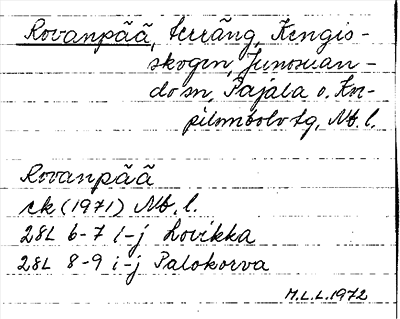 Rovanpää, terräng, Kengis-
skogen, Junosuan-
do sn, Pajala o. Kor-
pilombolo tg, Nb. l.
Rovanpää
ek (1971) Nb. l.
28L 6-7 i-j Lovikka
28L 8-9 i-j Palokorva
M.L.L. 1972